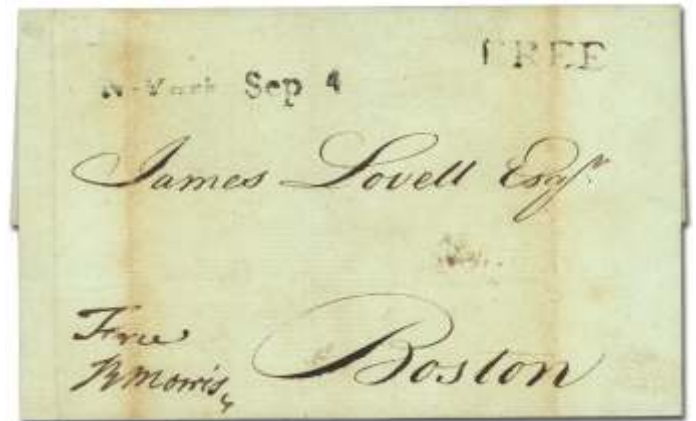 FREE
N-York Sep 4
James Lovell Esqr
Free
RMorris
Boston